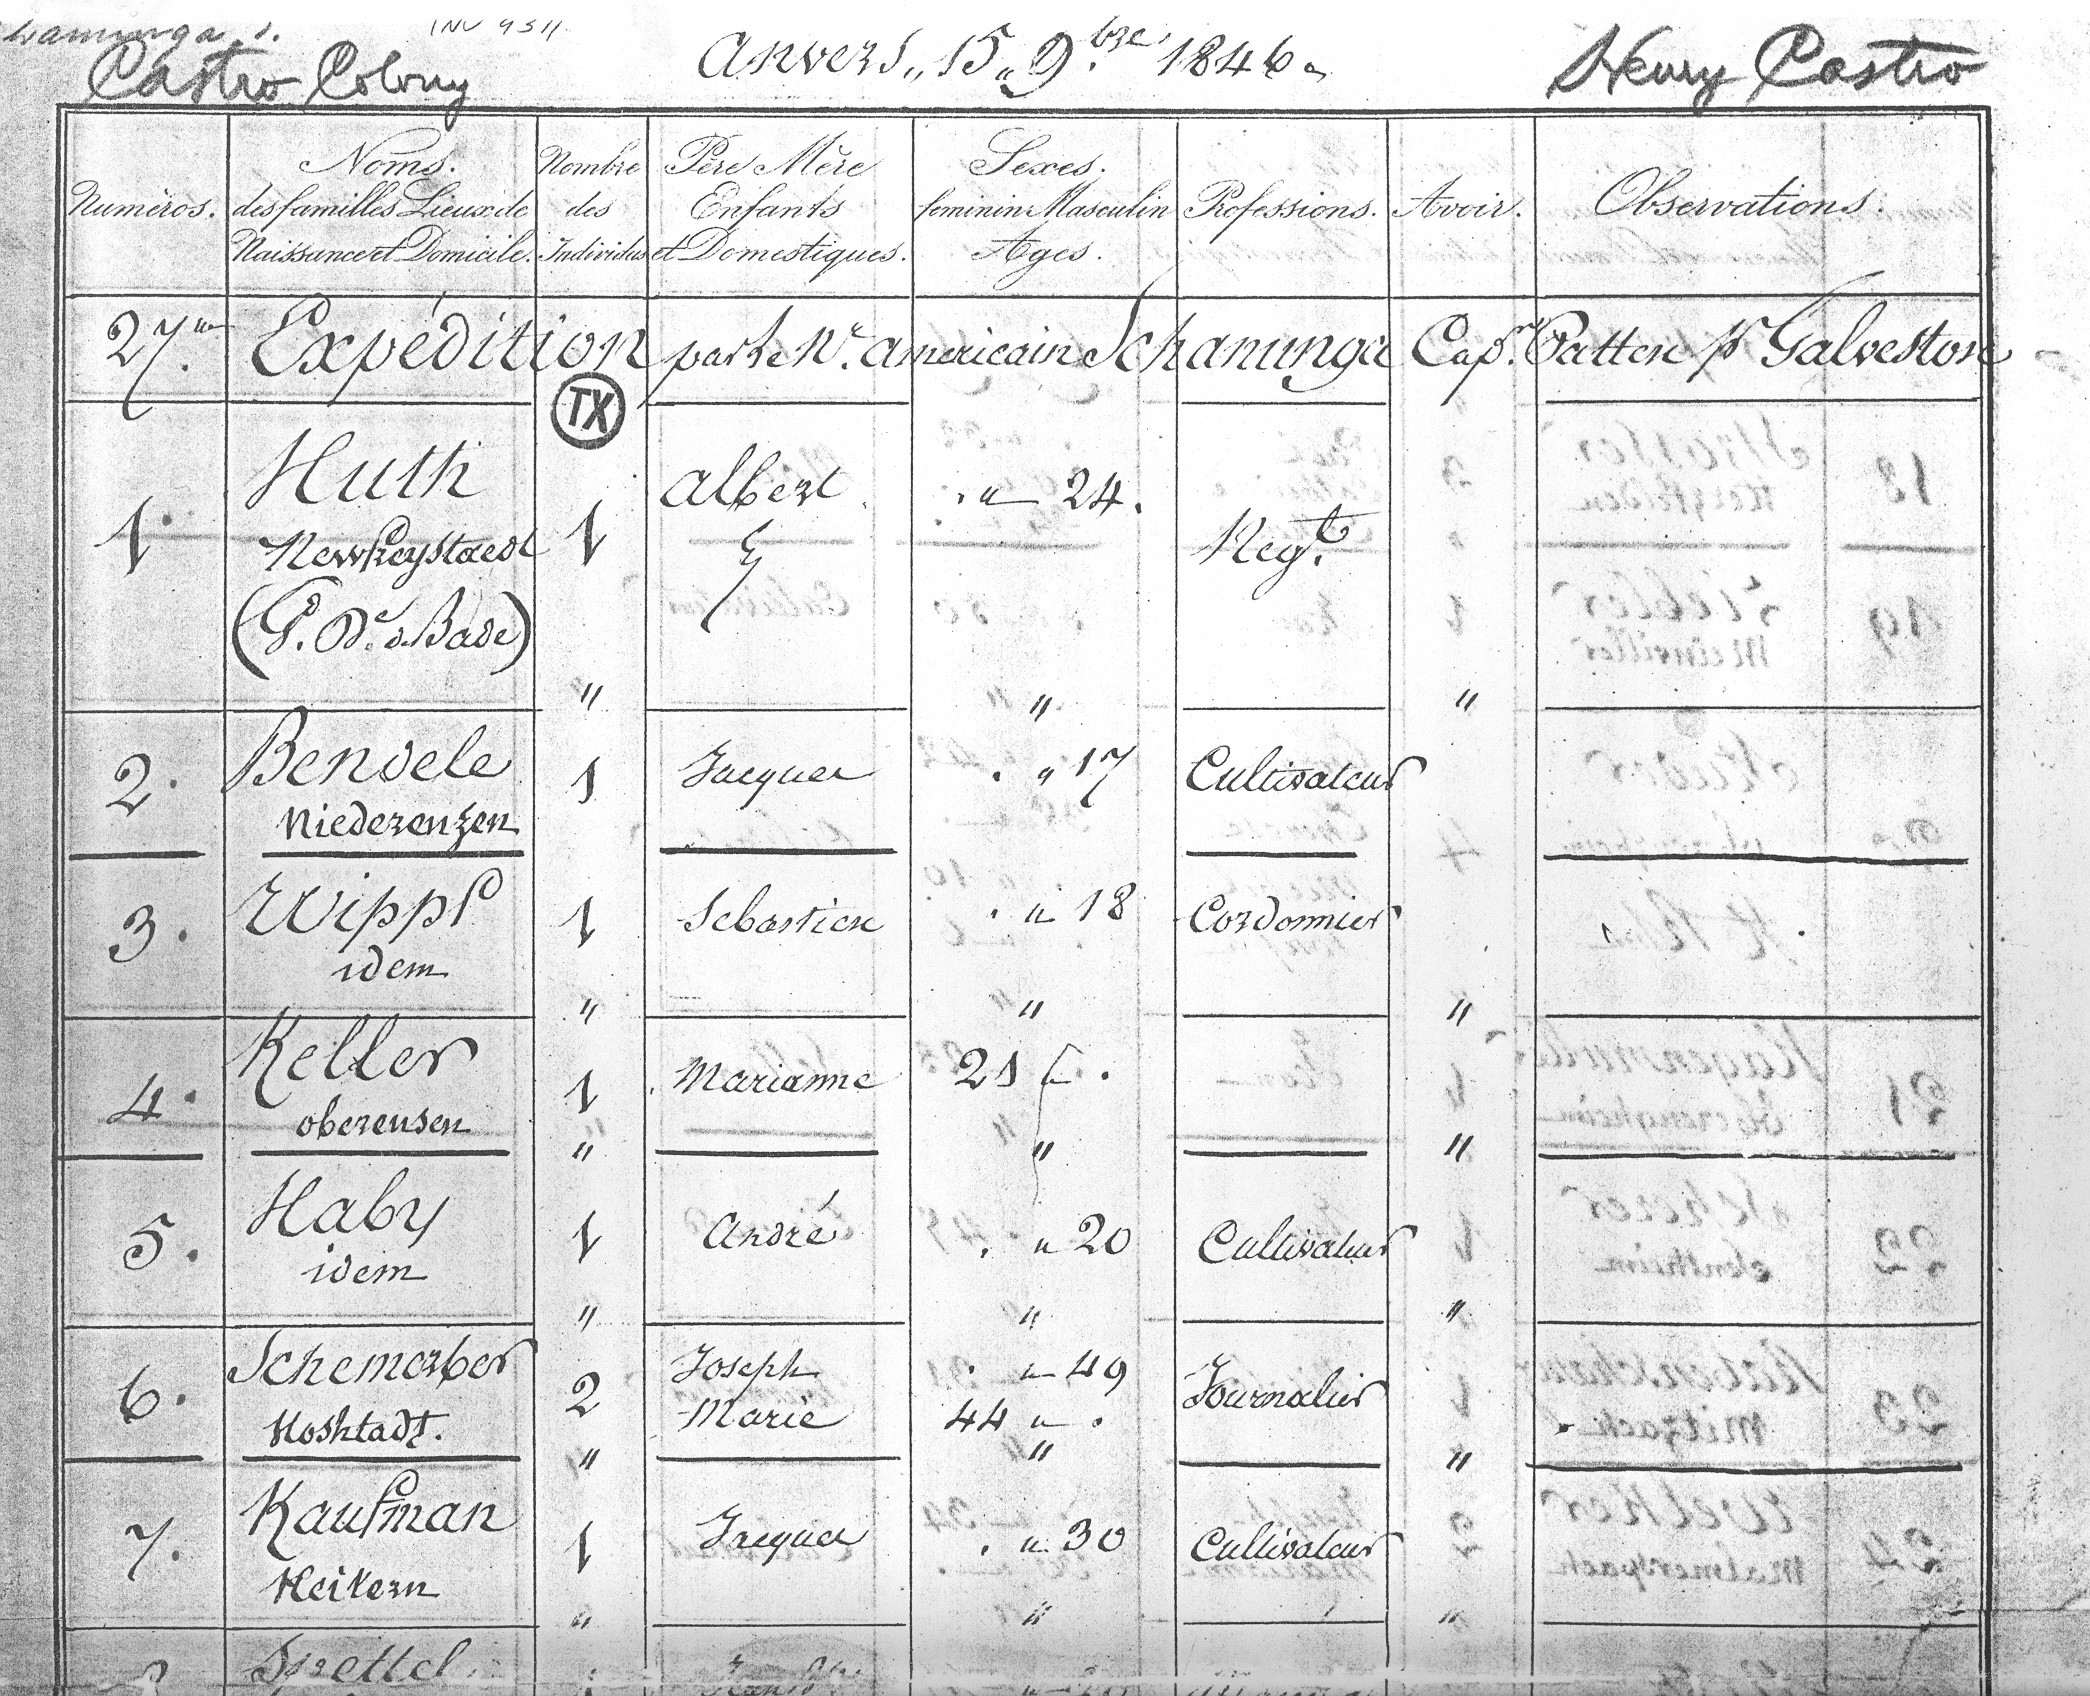 INV 9311
Castro Colony
Anvers, 15 9.bre 1846
Henry Castro
Numéros.
Noms.
des familles Lieux de
Naissance et Domicile.
Nombre
des
Individus
Père Mère
Enfants
et Domestiques.
Sexes.
feminin Masculin
Ages.
Professions.
Avoir.
Observations.
27.me Expédition par le N.re americain Schanunga Cap.ne Patten pr Galveston
TX
1. Huth 1 Albert " 24. Neg.t
(G. D.é d. Bade)
" " "
2. Bendele 1 Jacques " 17 Cultivateur
Niederenzen
3. Wippf 1 Sebastien " 18 Cordonnier
idem
" " "
4. Keller 1 Marianne 21 " .
oberensen
" " "
5. Haby 1 André " 20 Cultivateur
idem
" " "
6. Schemerber 2 Joseph " 49 Journalier
Marie 44 " .
Hoshtadt.
" " "
7. Kaufman 1 Jacques " 30 Cultivateur
Heitern
" " "
8 Spettel